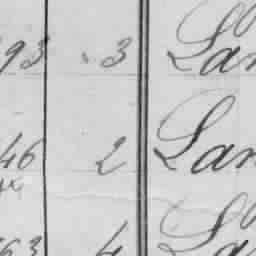 93 3 Lan
46 2 Lan
63 4 La